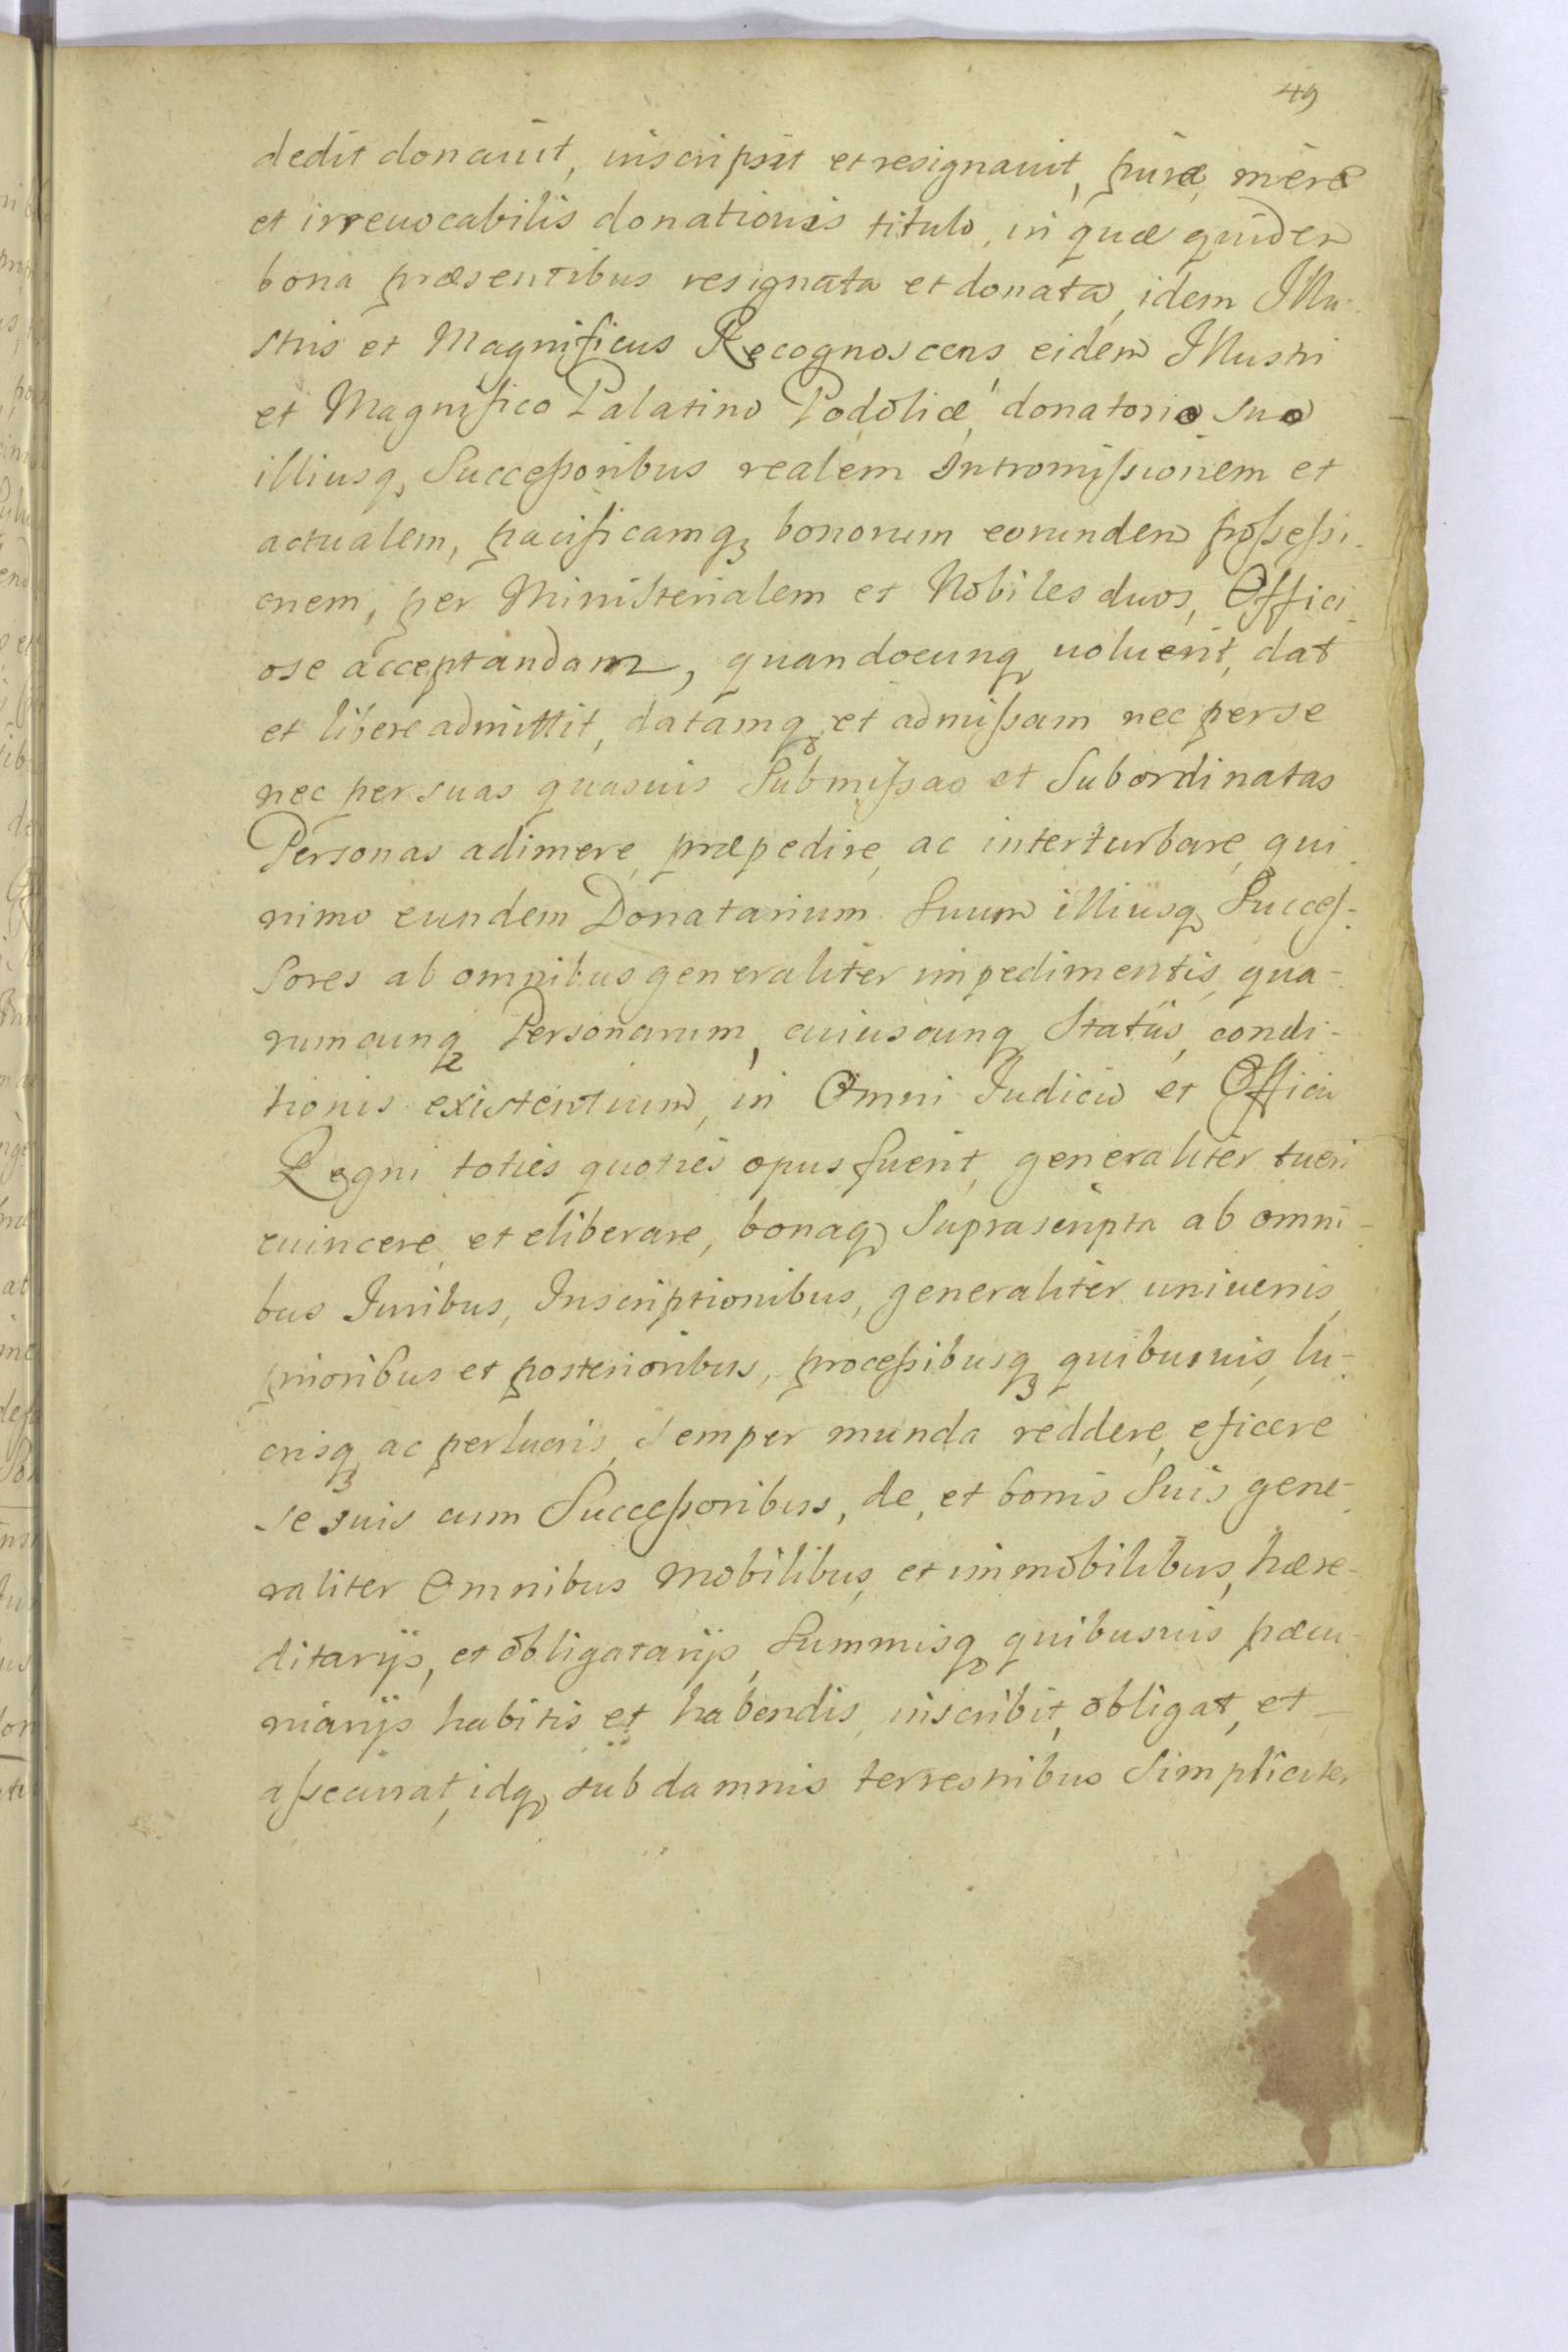 49
dedit donauit, inscripsit et resignauit, puræ, meræ
et irreuocabilis donationis titulo, in quæ quidem
bona præsentibus resignata et donata, idem Illu-
stris et Magnificus Recognoscens, eidem Illustri
et Magnifico Palatino Podoliæ, donatorio suo
illiusq, Successoribus realem Intromissionem et
actualem, pacificamq, bonorum eorundem possessi-
onem, per Ministerialem et Nobiles duos, Offici
ose acceptandam, quandocunq uoluerit, dat
et libere admittit, datamq, et admissam nec per se
nec per suas quasuis Submissas et Subordinatas
Personas adimere, præpedire, ac interturbare, qui
nimo eundem Donatarium Suum illiusq Succes-
sores ab omnibus generaliter impedimentis, qua-
rumcunq Personarum, cuiuscunq Status, condi-
tionis existentium, in Omni Iudicio et Officio
Regni toties quoties opus fuerit, generaliter tueri
euincere, et eliberare, bonaq, Suprascripta ab omni-
bus Iuribus, Inscriptionibus, generaliter uniuersis,
prioribus et posterioribus, processibusq, quibusuis, lu-
crisq, ac perlucris, Semper munda reddere, eficere
se suis cum Successoribus, de, et bonis Suis gene-
raliter Omnibus Mobilibus, et immobilibus, hære-
ditarijs, et obligatarijs, Summisq, quibusuis pæcu-
niarijs habitis et habendis, inscribit, obligat, et
assecurat, idq, sub damnis terrestribus Simpliciter